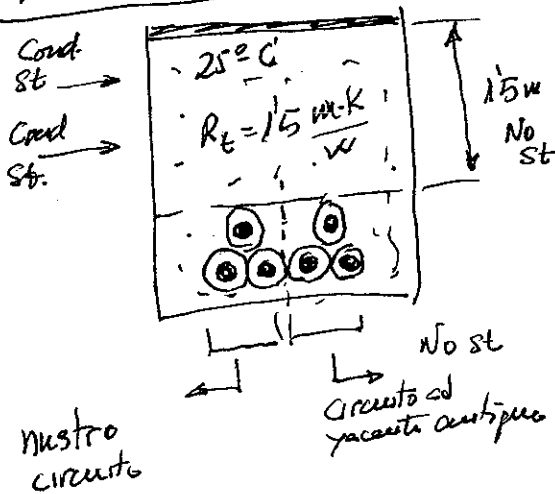 Cond.
St
25º C
Cond
St.
Rt = 1'5 m·K
W
1'5 m
No
St
No St
nustro
circuito
circuito ad
yacente antiguo